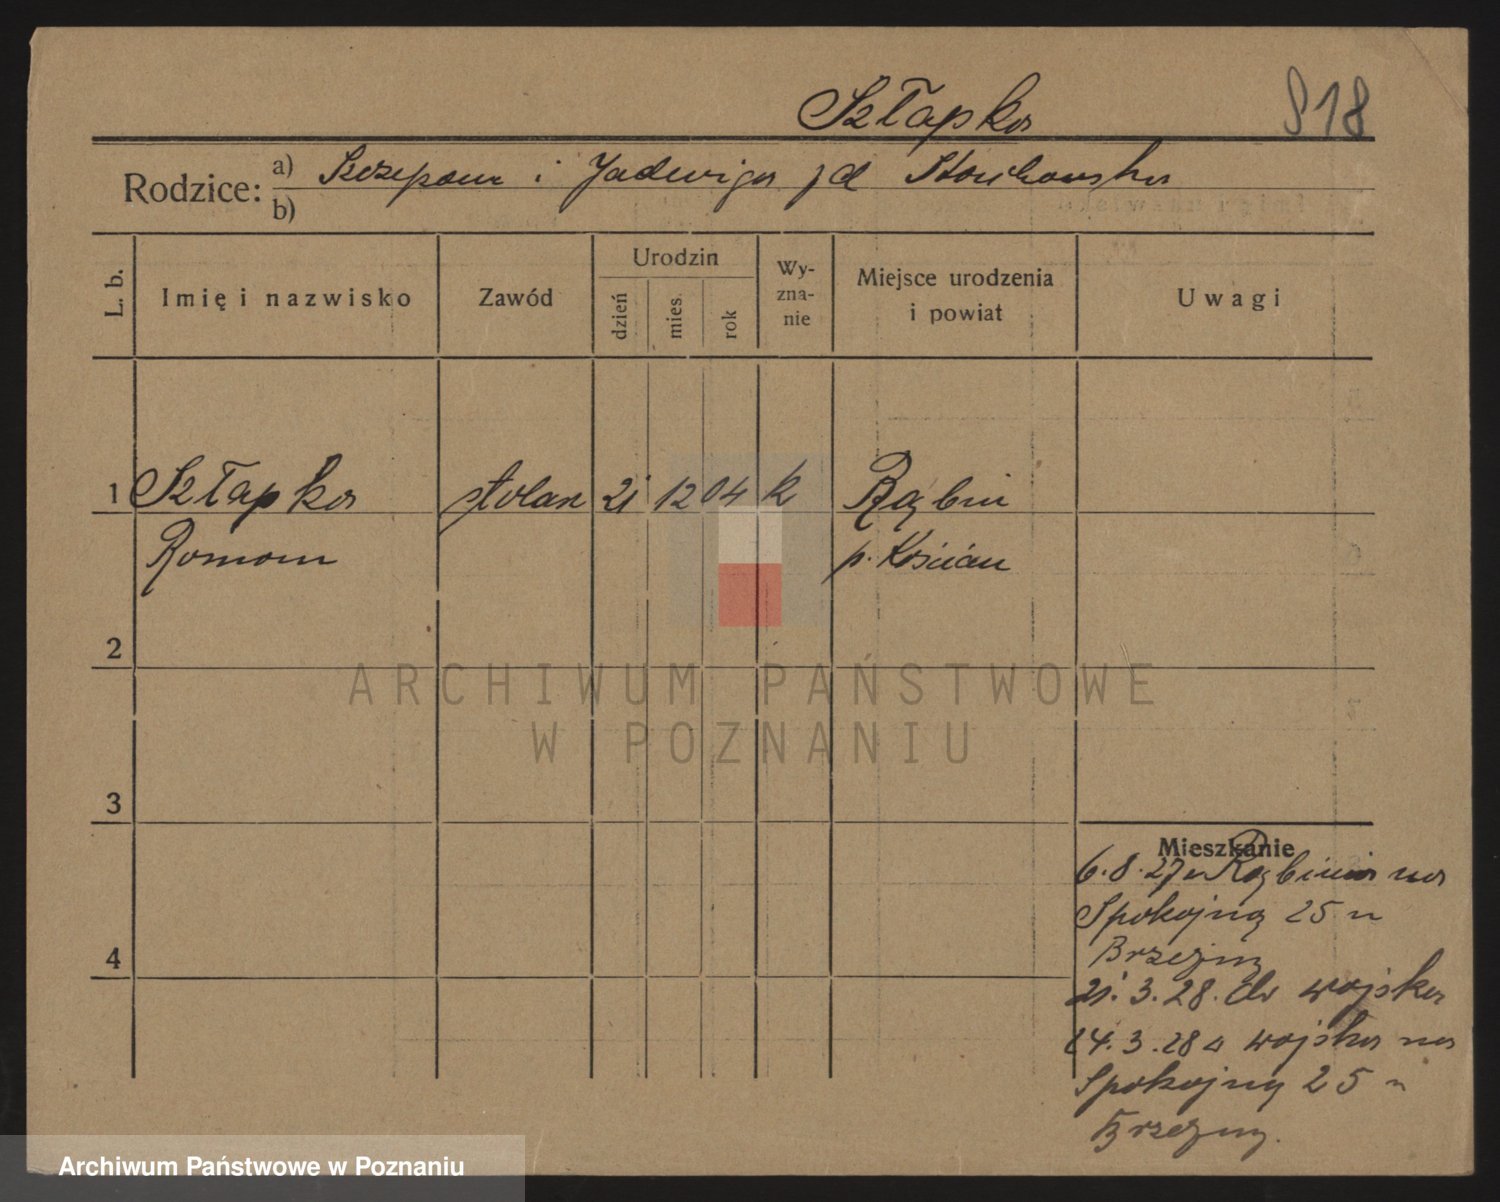 Szłapka 818
Rodzice: a) Szczepan i Jadwiga zd
b)
L. b. Imię i nazwisko Zawód Urodzin dzień mies. rok Wy-zna-nie Miejsce urodzenia i powiat Uwagi
1 Szłapka stolarz 21 12 04 k Rąbiń
Roman p. Kościan
2
ARCHIWUM PAŃSTWOWE
W POZNANIU
3
Mieszkanie
6.8.27 z Rąbinia na
Spokojną 25 u
4 Brzeziny
21.3.28. do wojska
24.3.28 z wojska na
Spokojną 25 u
Brzeziny.
Archiwum Państwowe w Poznaniu